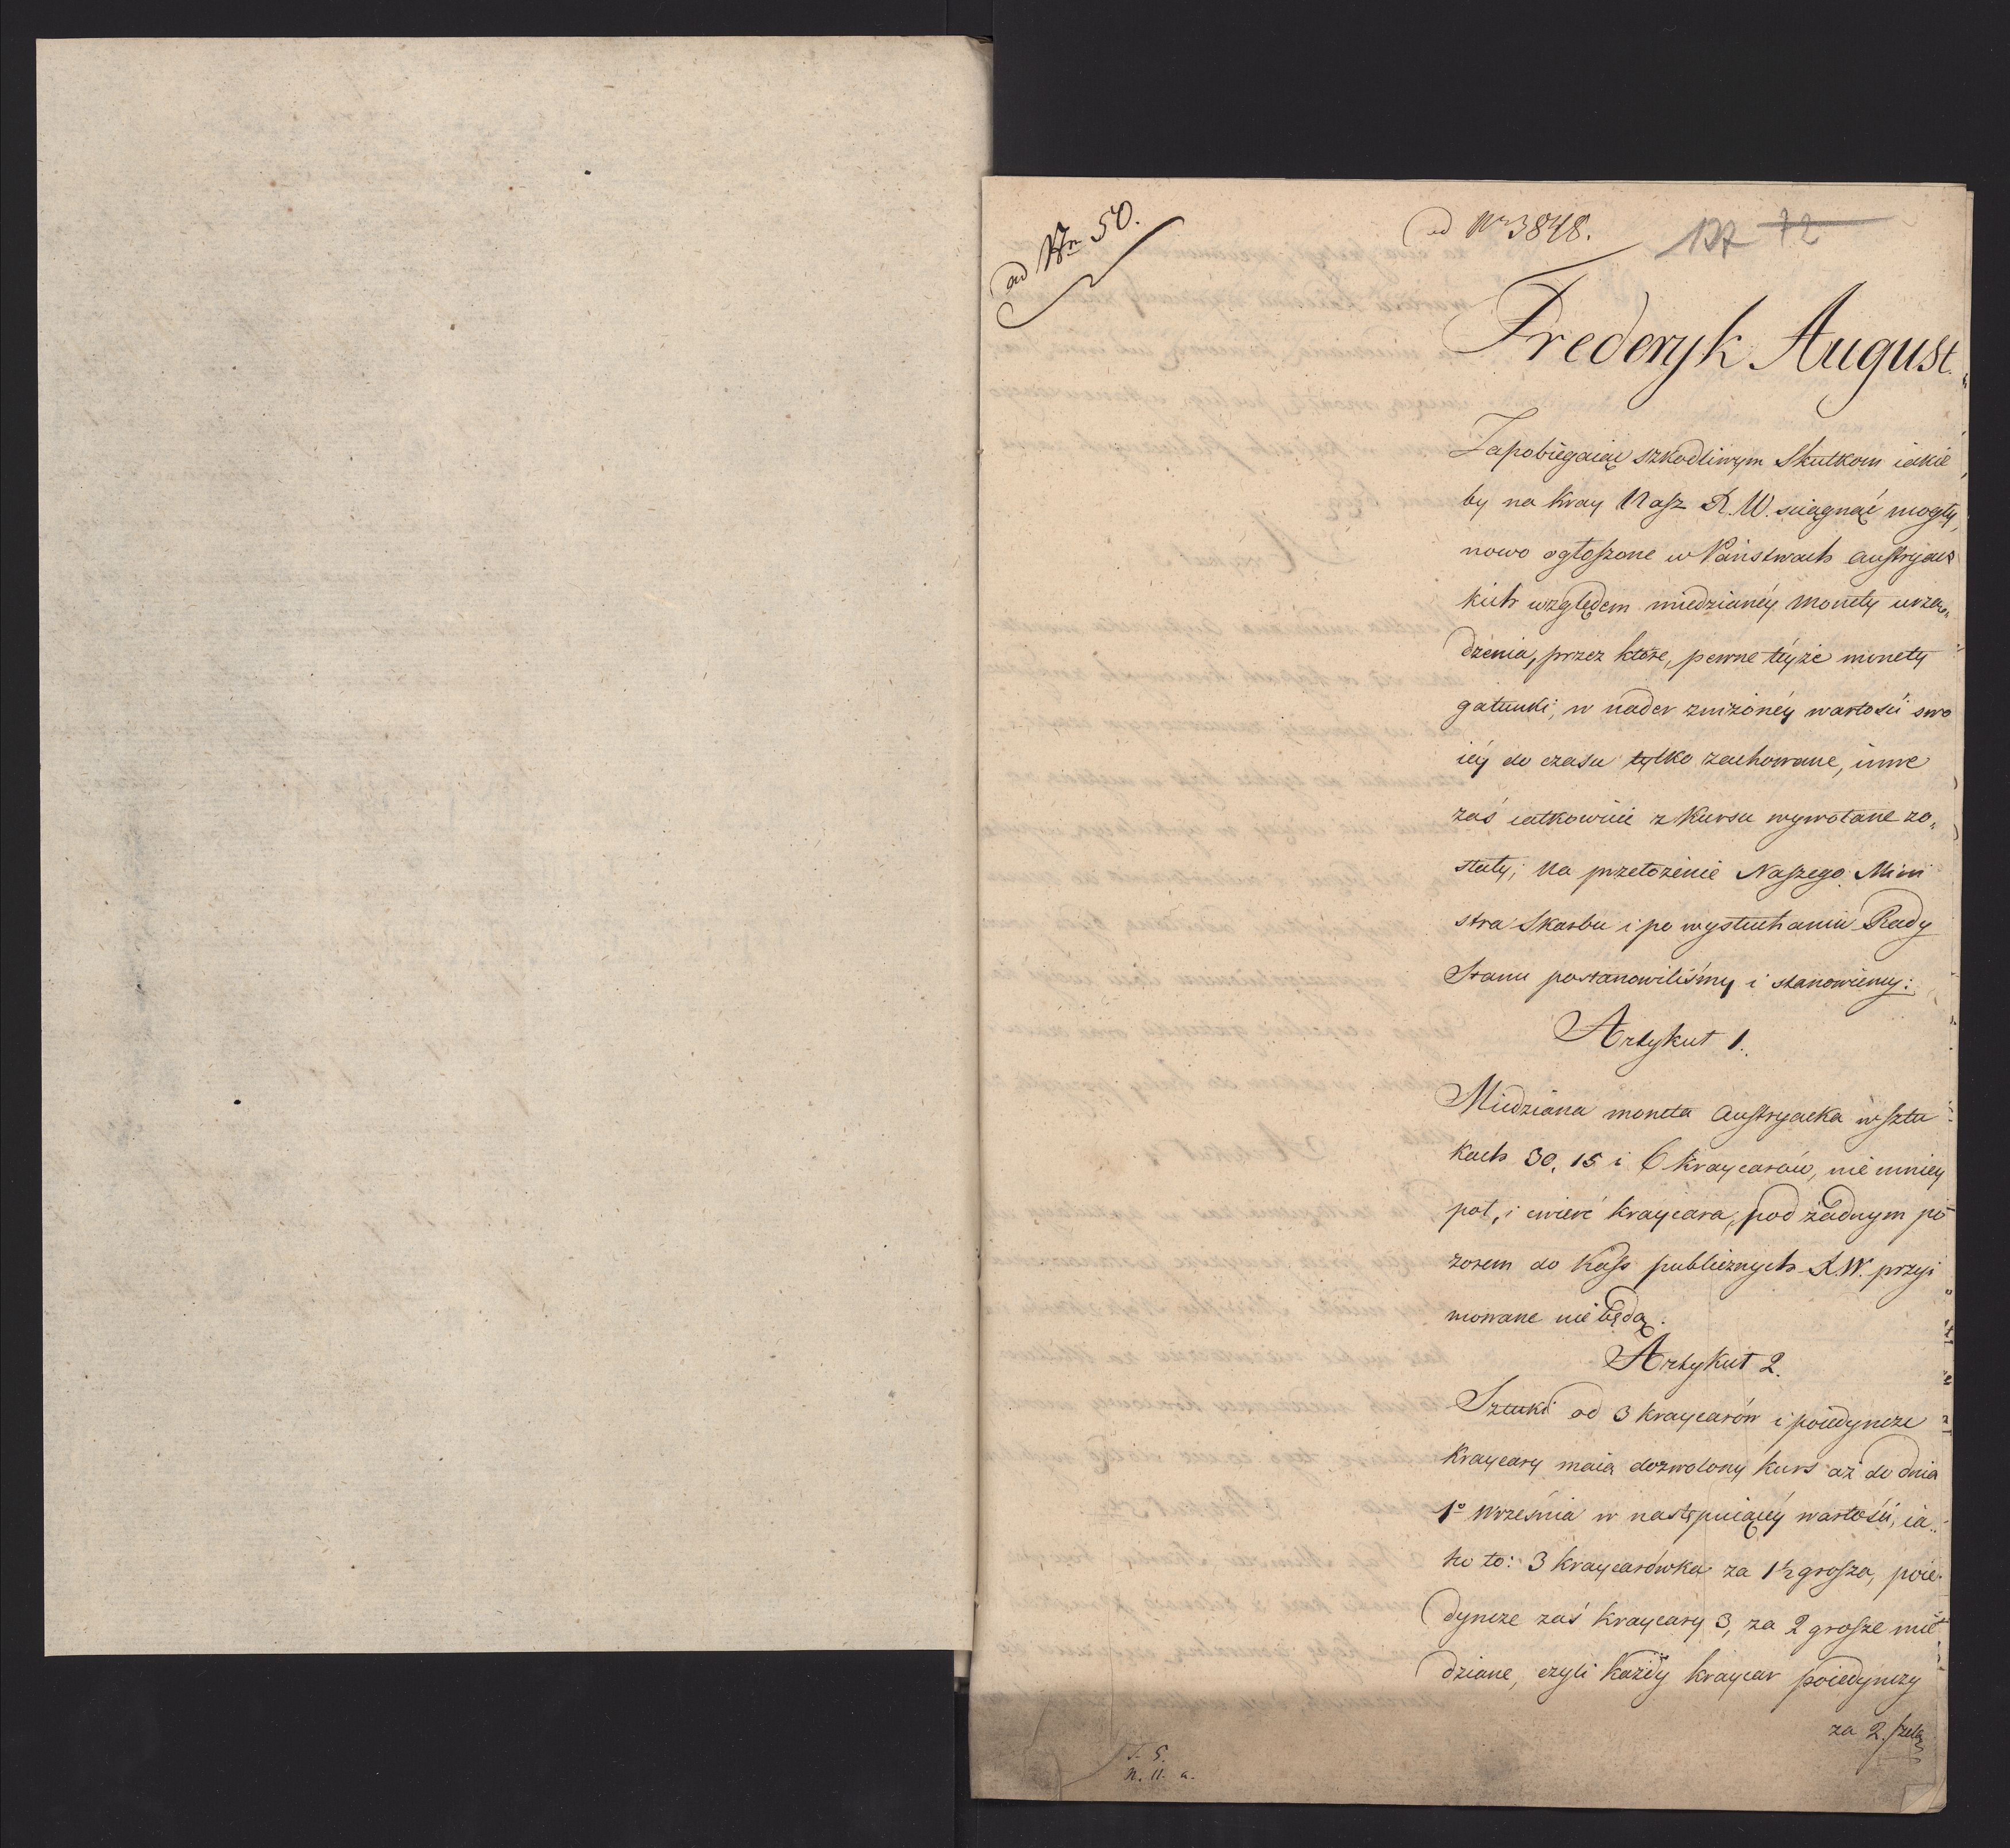 ad Nr 50.
ad Nr 3848.
127 72
Frederyk August
Zapobiegaiąc szkodliwym Skutkom iakie
by na kray Nasz X. W. sciągnąć mogły,
nowo ogłoszone w Państwach Austryac
kich względem miedzianéy Monety urzą„
dzenia, przez które, pewne téyże monety
gatunki, w nader zniżonéy wartości swo
iéy do czasu tylko zachowane, inne
zaś całkowicie z kursu wywołane zo„
stały; Na przełożenie Naszego Mini
stra Skarbu i po wysłuchaniu Rady
Stanu postanowiliśmy i stanowiemy:
Artykuł 1.
Miedziana moneta Austryacka w sztu
kach 30, 15 i 6 kraycarów, nie mniey
pół, i cwierć kraycara, pod żadnym po
zorem do Kass publicznych X. W. przyi
mowane nie będą.
Artykuł 2.
Sztuki od 3 kraycarów i poiedyncze
kraycary maią dozwolony kurs aż do dnia
1o Września w następuiącéy wartości, ia„
ko to: 3 kraycarówka za 1½ grosza, poie„
dyncze zaś kraycary 3, za 2 grosze mie
dziane, czyli każdy kraycar poiedynczy
za 2. szelą
J. 5.
n. 11. a.